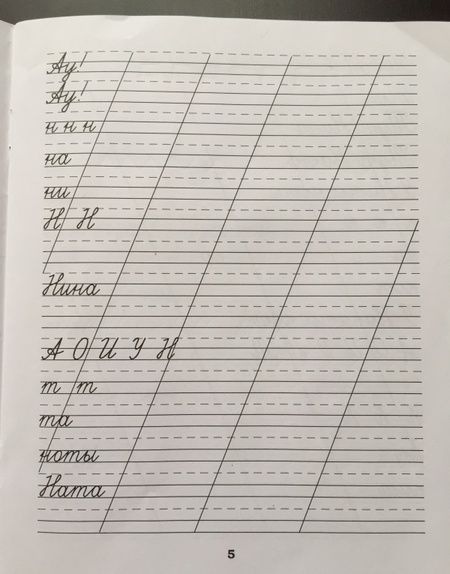 Ау!
Ау!
н н н
на
ни
Н Н
Нина
А О И У Н
т т
та
ноты
Ната
5